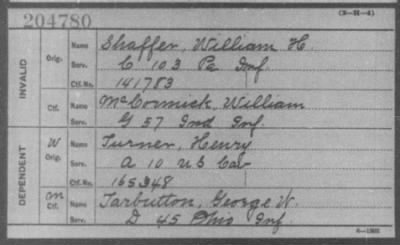 (3-31-4)
204780
INVALID
Orig.
Name Shaffer, William H.
Serv. C 103 Pa Inf.
Ctf. No. 141783
Ctf.
Name McCormick, William
Serv. G 57 Ind Inf.
DEPENDENT
W
Orig.
Name Turner, Henry
Serv. A 10 US Cav
Ctf. No. 165348
M
Ctf.
Name Tarbutton, George W.
Serv. D 45 Ohio Inf.